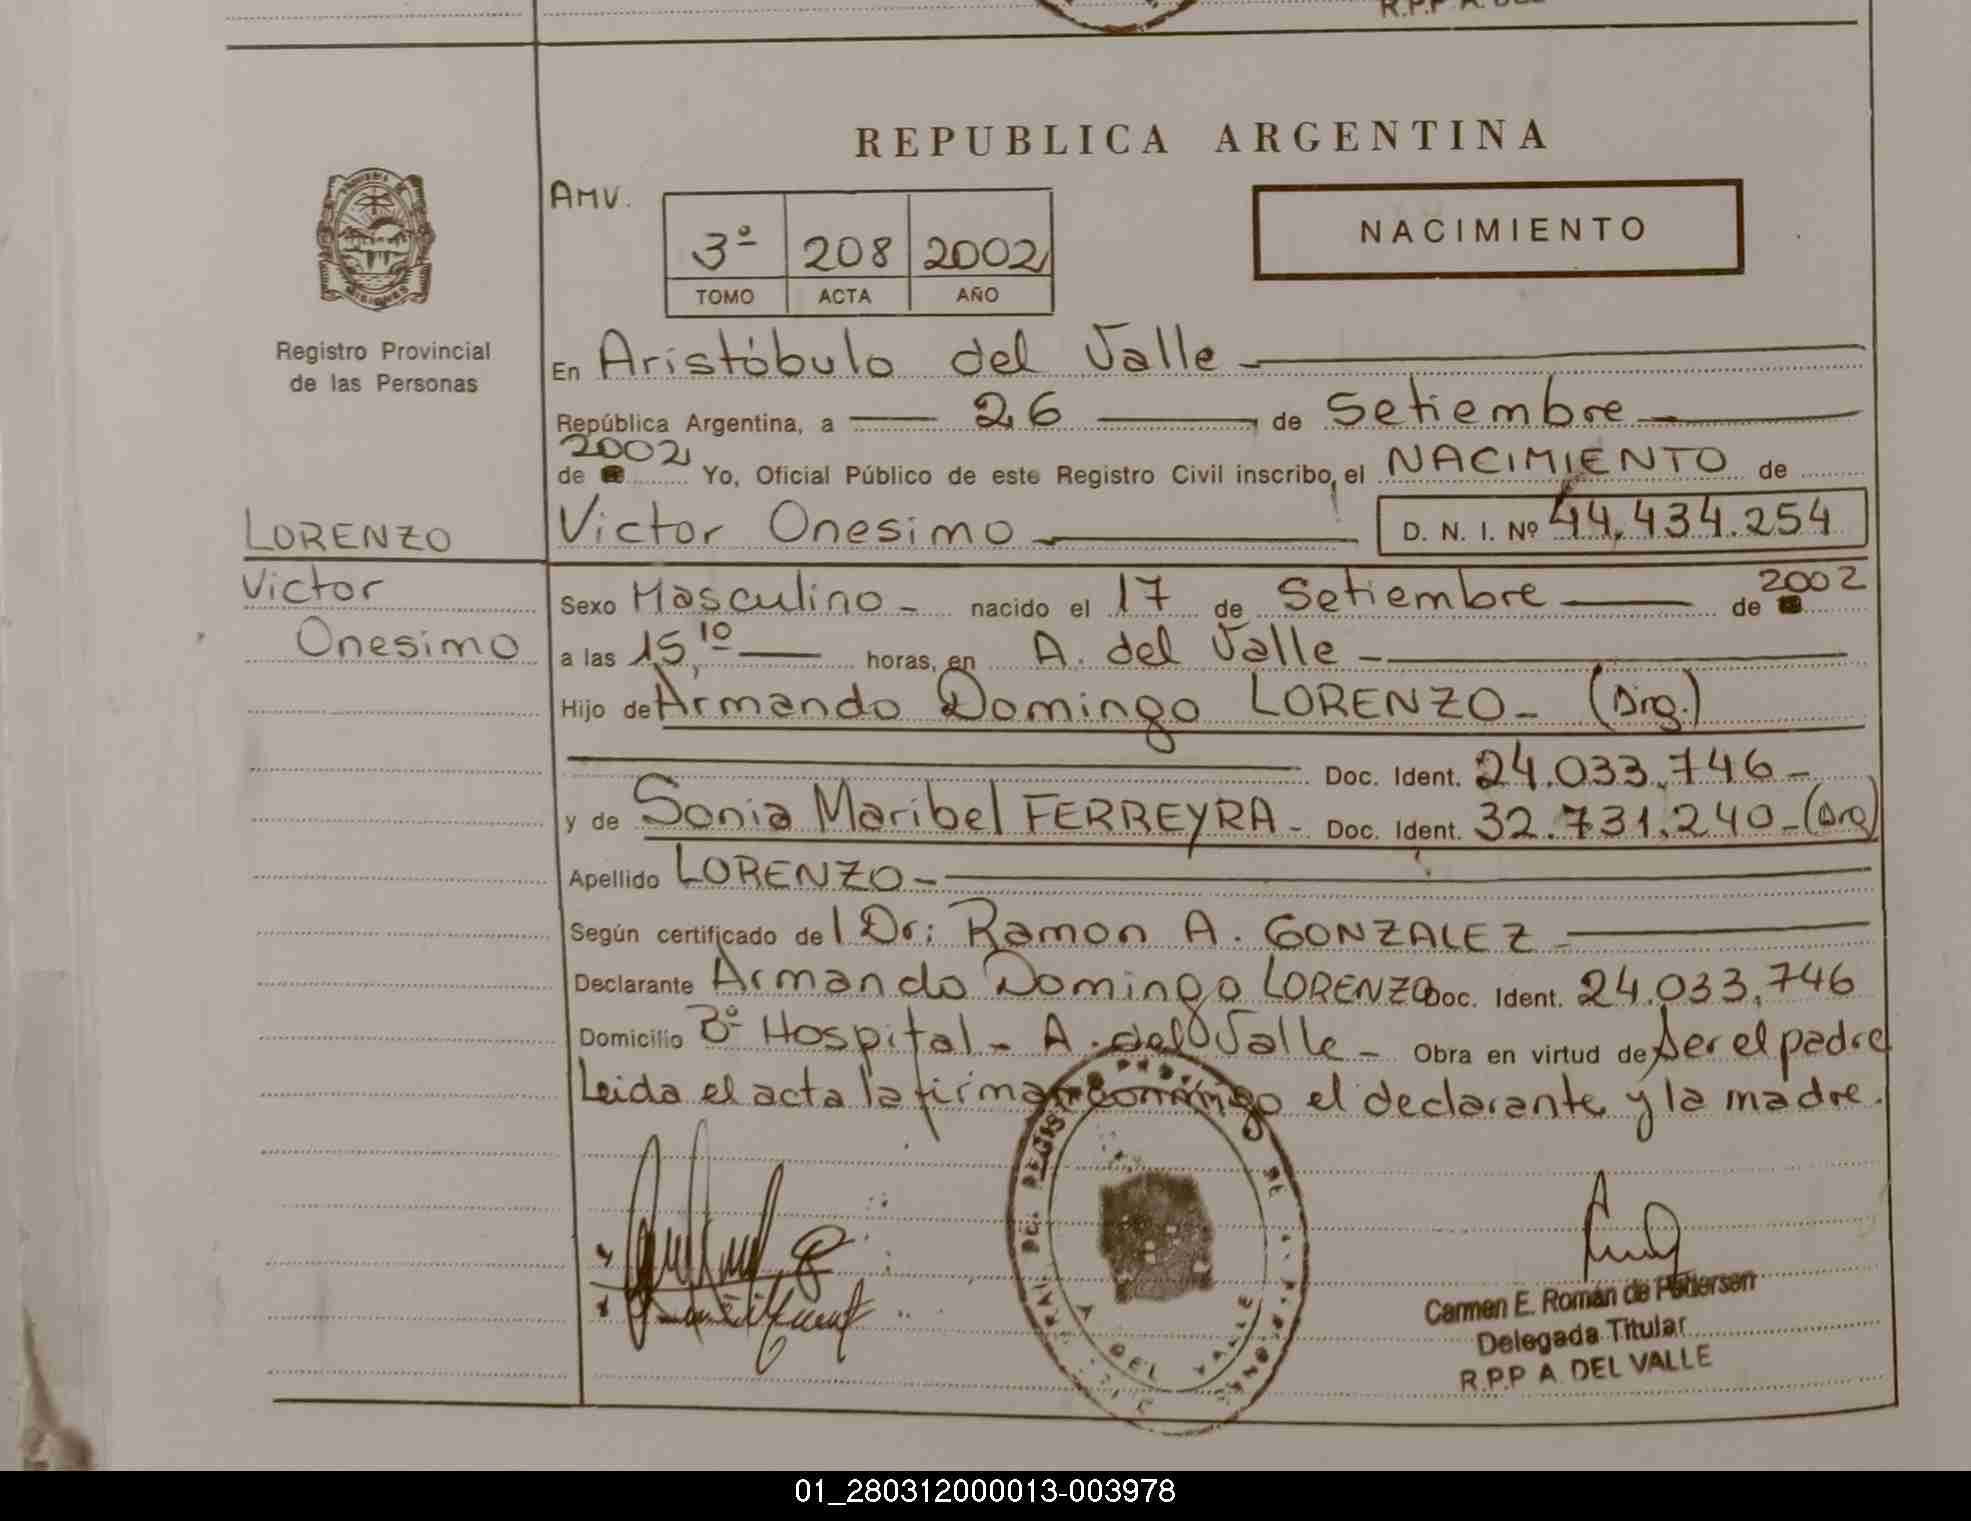 REPUBLICA ARGENTINA
AMV.
3º 208 2002
TOMO ACTA AÑO
NACIMIENTO
Registro Provincial
de las Personas
En Aristóbulo del Valle
República Argentina, a 26 de Setiembre
de 2002 Yo, Oficial Público de este Registro Civil inscribo el NACIMIENTO de
Victor Onesimo D. N. I. Nº 44.434.254
LORENZO
Victor
Onesimo
Sexo Masculino nacido el 17 de Setiembre de 2002
a las 15,10 horas, en A. del Valle
Hijo de Armando Domingo LORENZO (Arg.)
Doc. Ident. 24.033.746
y de Sonia Maribel FERREYRA Doc. Ident. 32.731.240 (Arg)
Apellido LORENZO
Según certificado del Dr: Ramon A. GONZALEZ
Declarante Armando Domingo LORENZO Doc. Ident. 24.033.746
Domicilio Bº Hospital - A. del Valle - Obra en virtud de ser el padre
Leida el acta la firman conmigo el declarante y la madre.
Carmen E. Román de Pedersen
Delegada Titular
R.P.P A. DEL VALLE
01_280312000013-003978